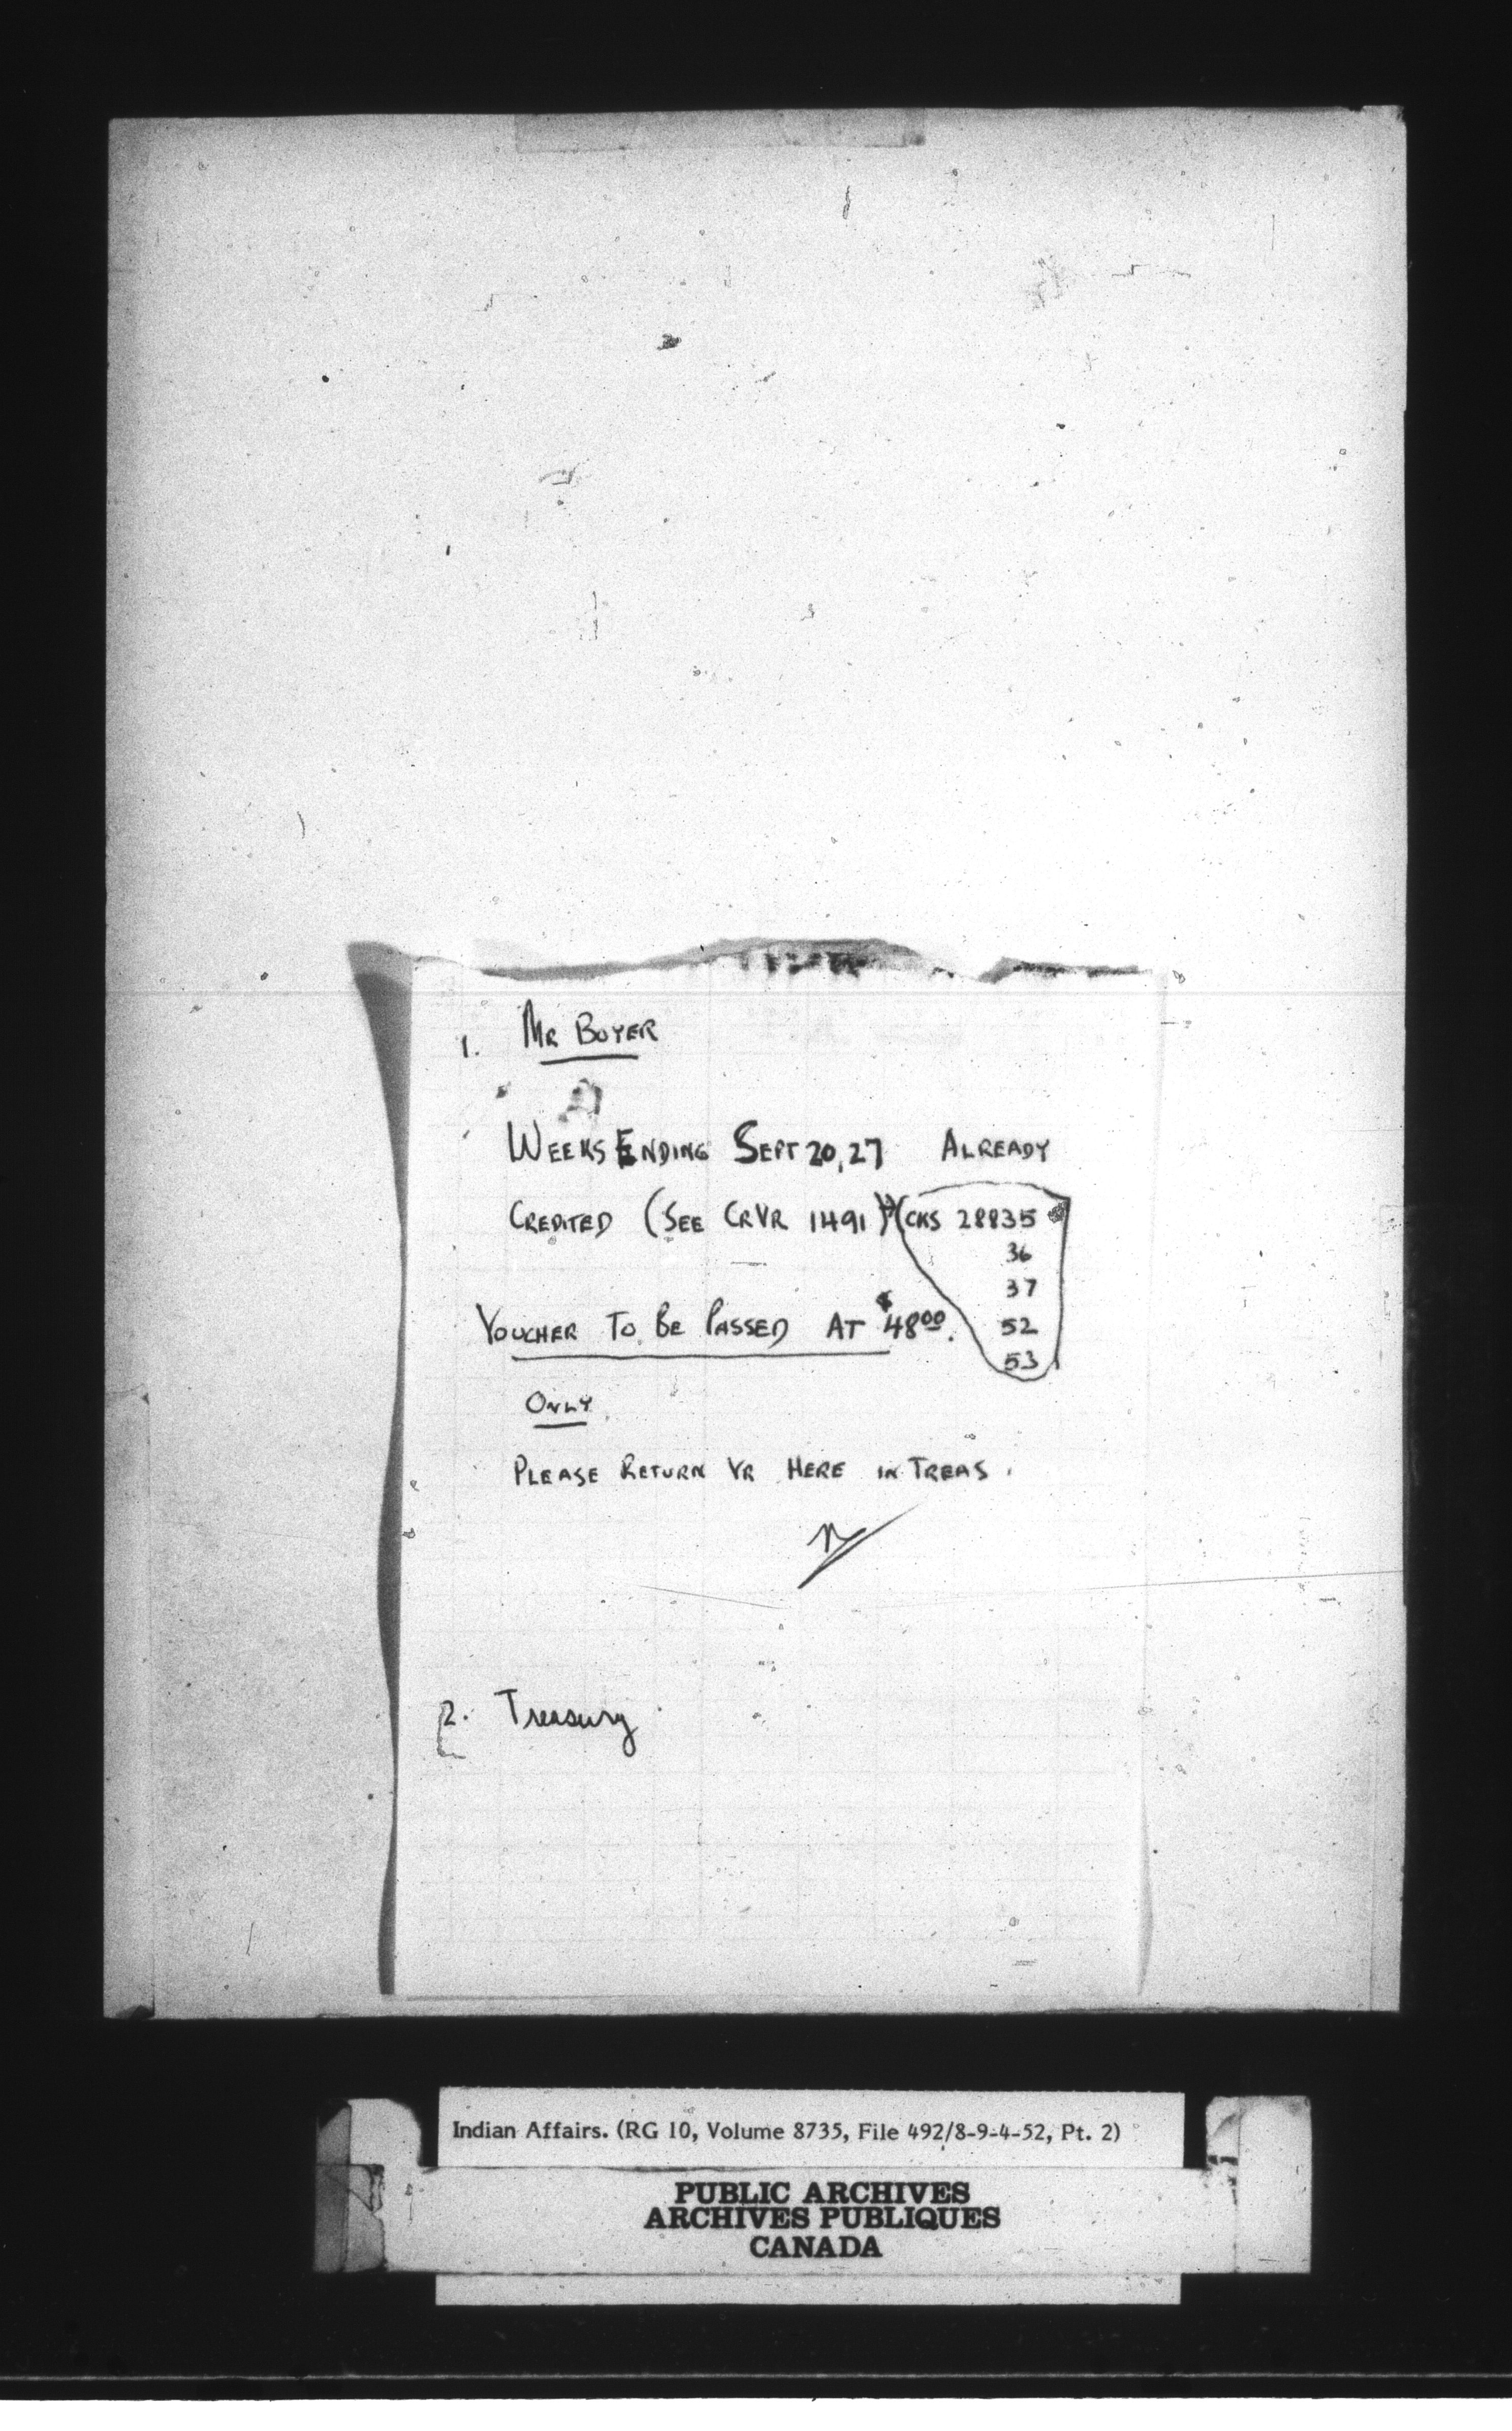 1. MR BOYER
WEEKS ENDING SEPT 20, 27 ALREADY
CREDITED (SEE CRVR 1491) (CKS 28835
36
37
VOUCHER TO BE PASSED AT $4800. 52
53
ONLY
PLEASE RETURN VR HERE IN TREAS.
2. Treasury
Indian Affairs. (RG 10, Volume 8735, File 492/8-9-4-52, Pt. 2)
PUBLIC ARCHIVES
ARCHIVES PUBLIQUES
CANADA